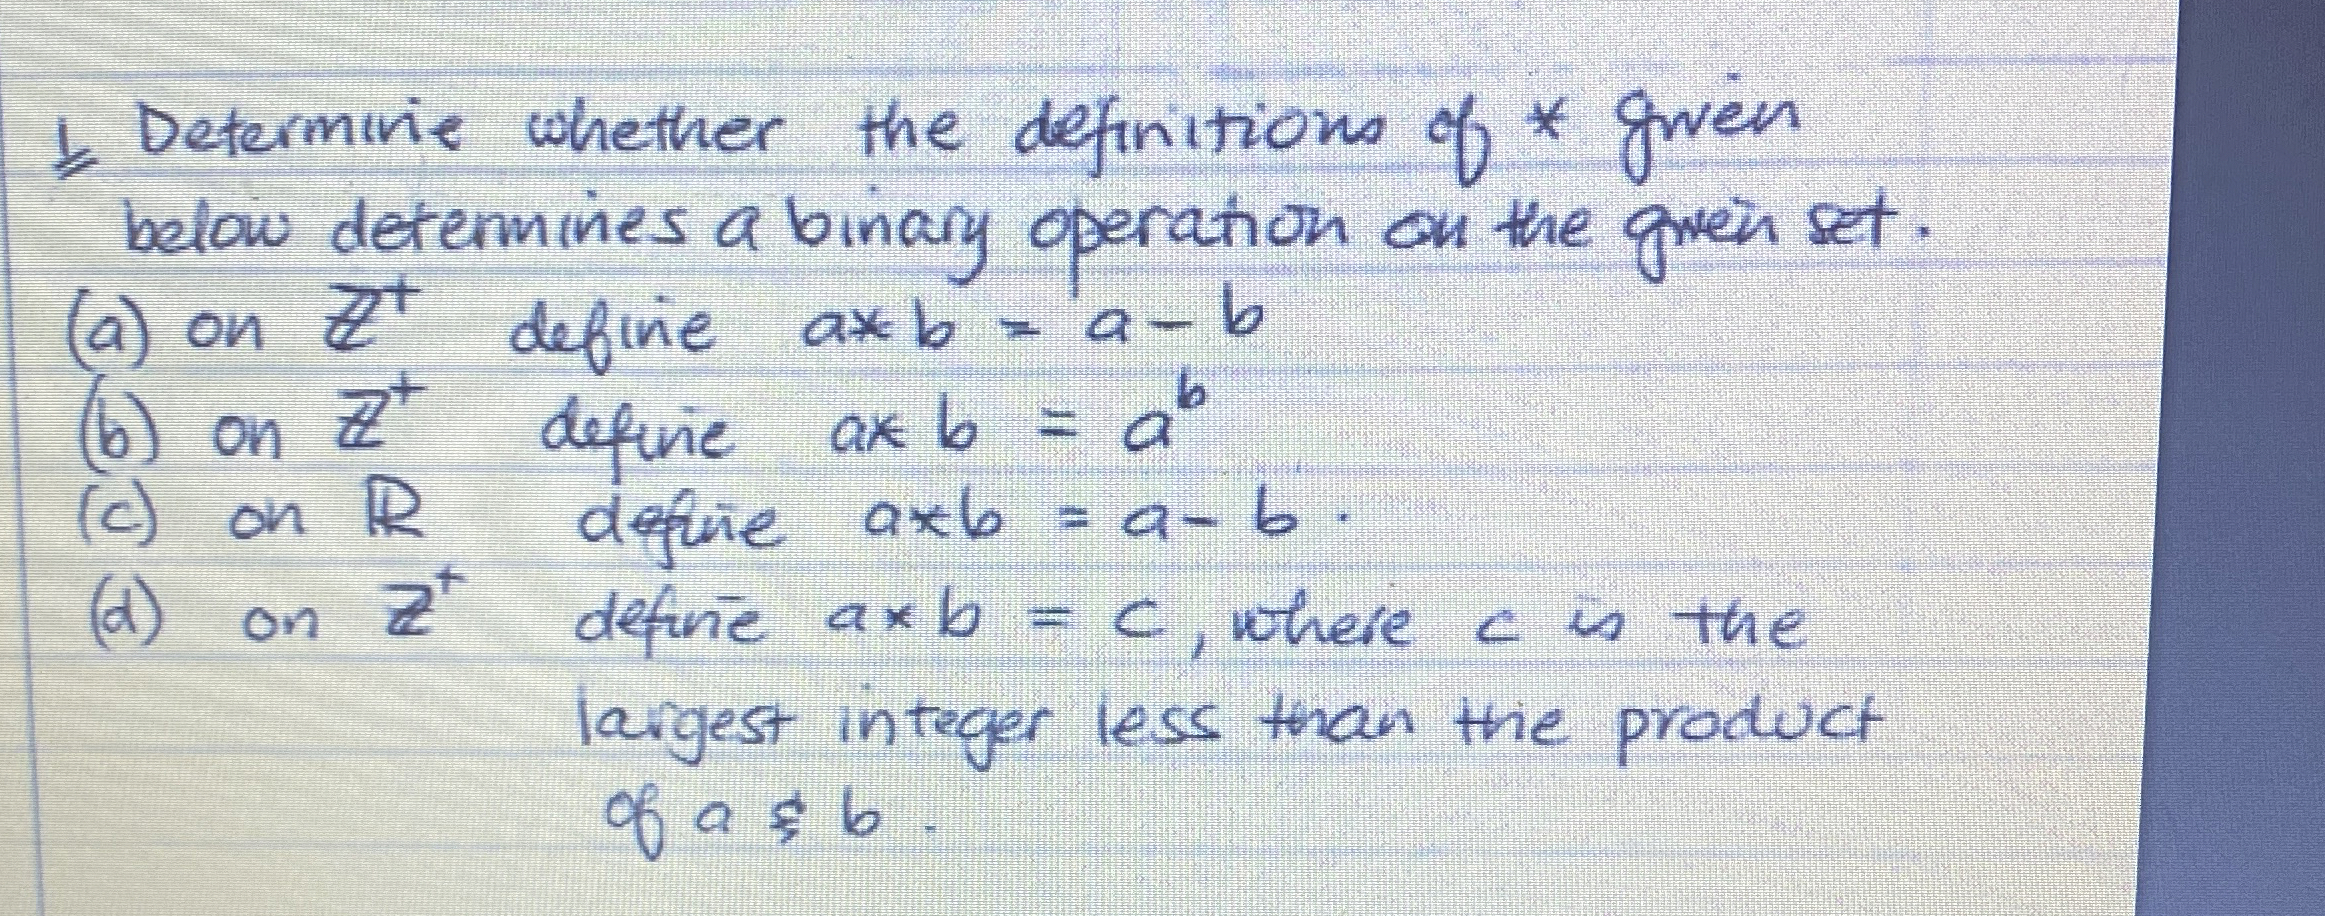 1 Determine whether the definitions of * given
below determines a binary operation on the given set.
(a) on ℤ⁺ define a * b = a - b
(b) on ℤ⁺ define a * b = aᵇ
(c) on ℝ define a * b = a - b.
(d) on ℤ⁺ define a * b = c, where c is the
largest integer less than the product
of a & b.